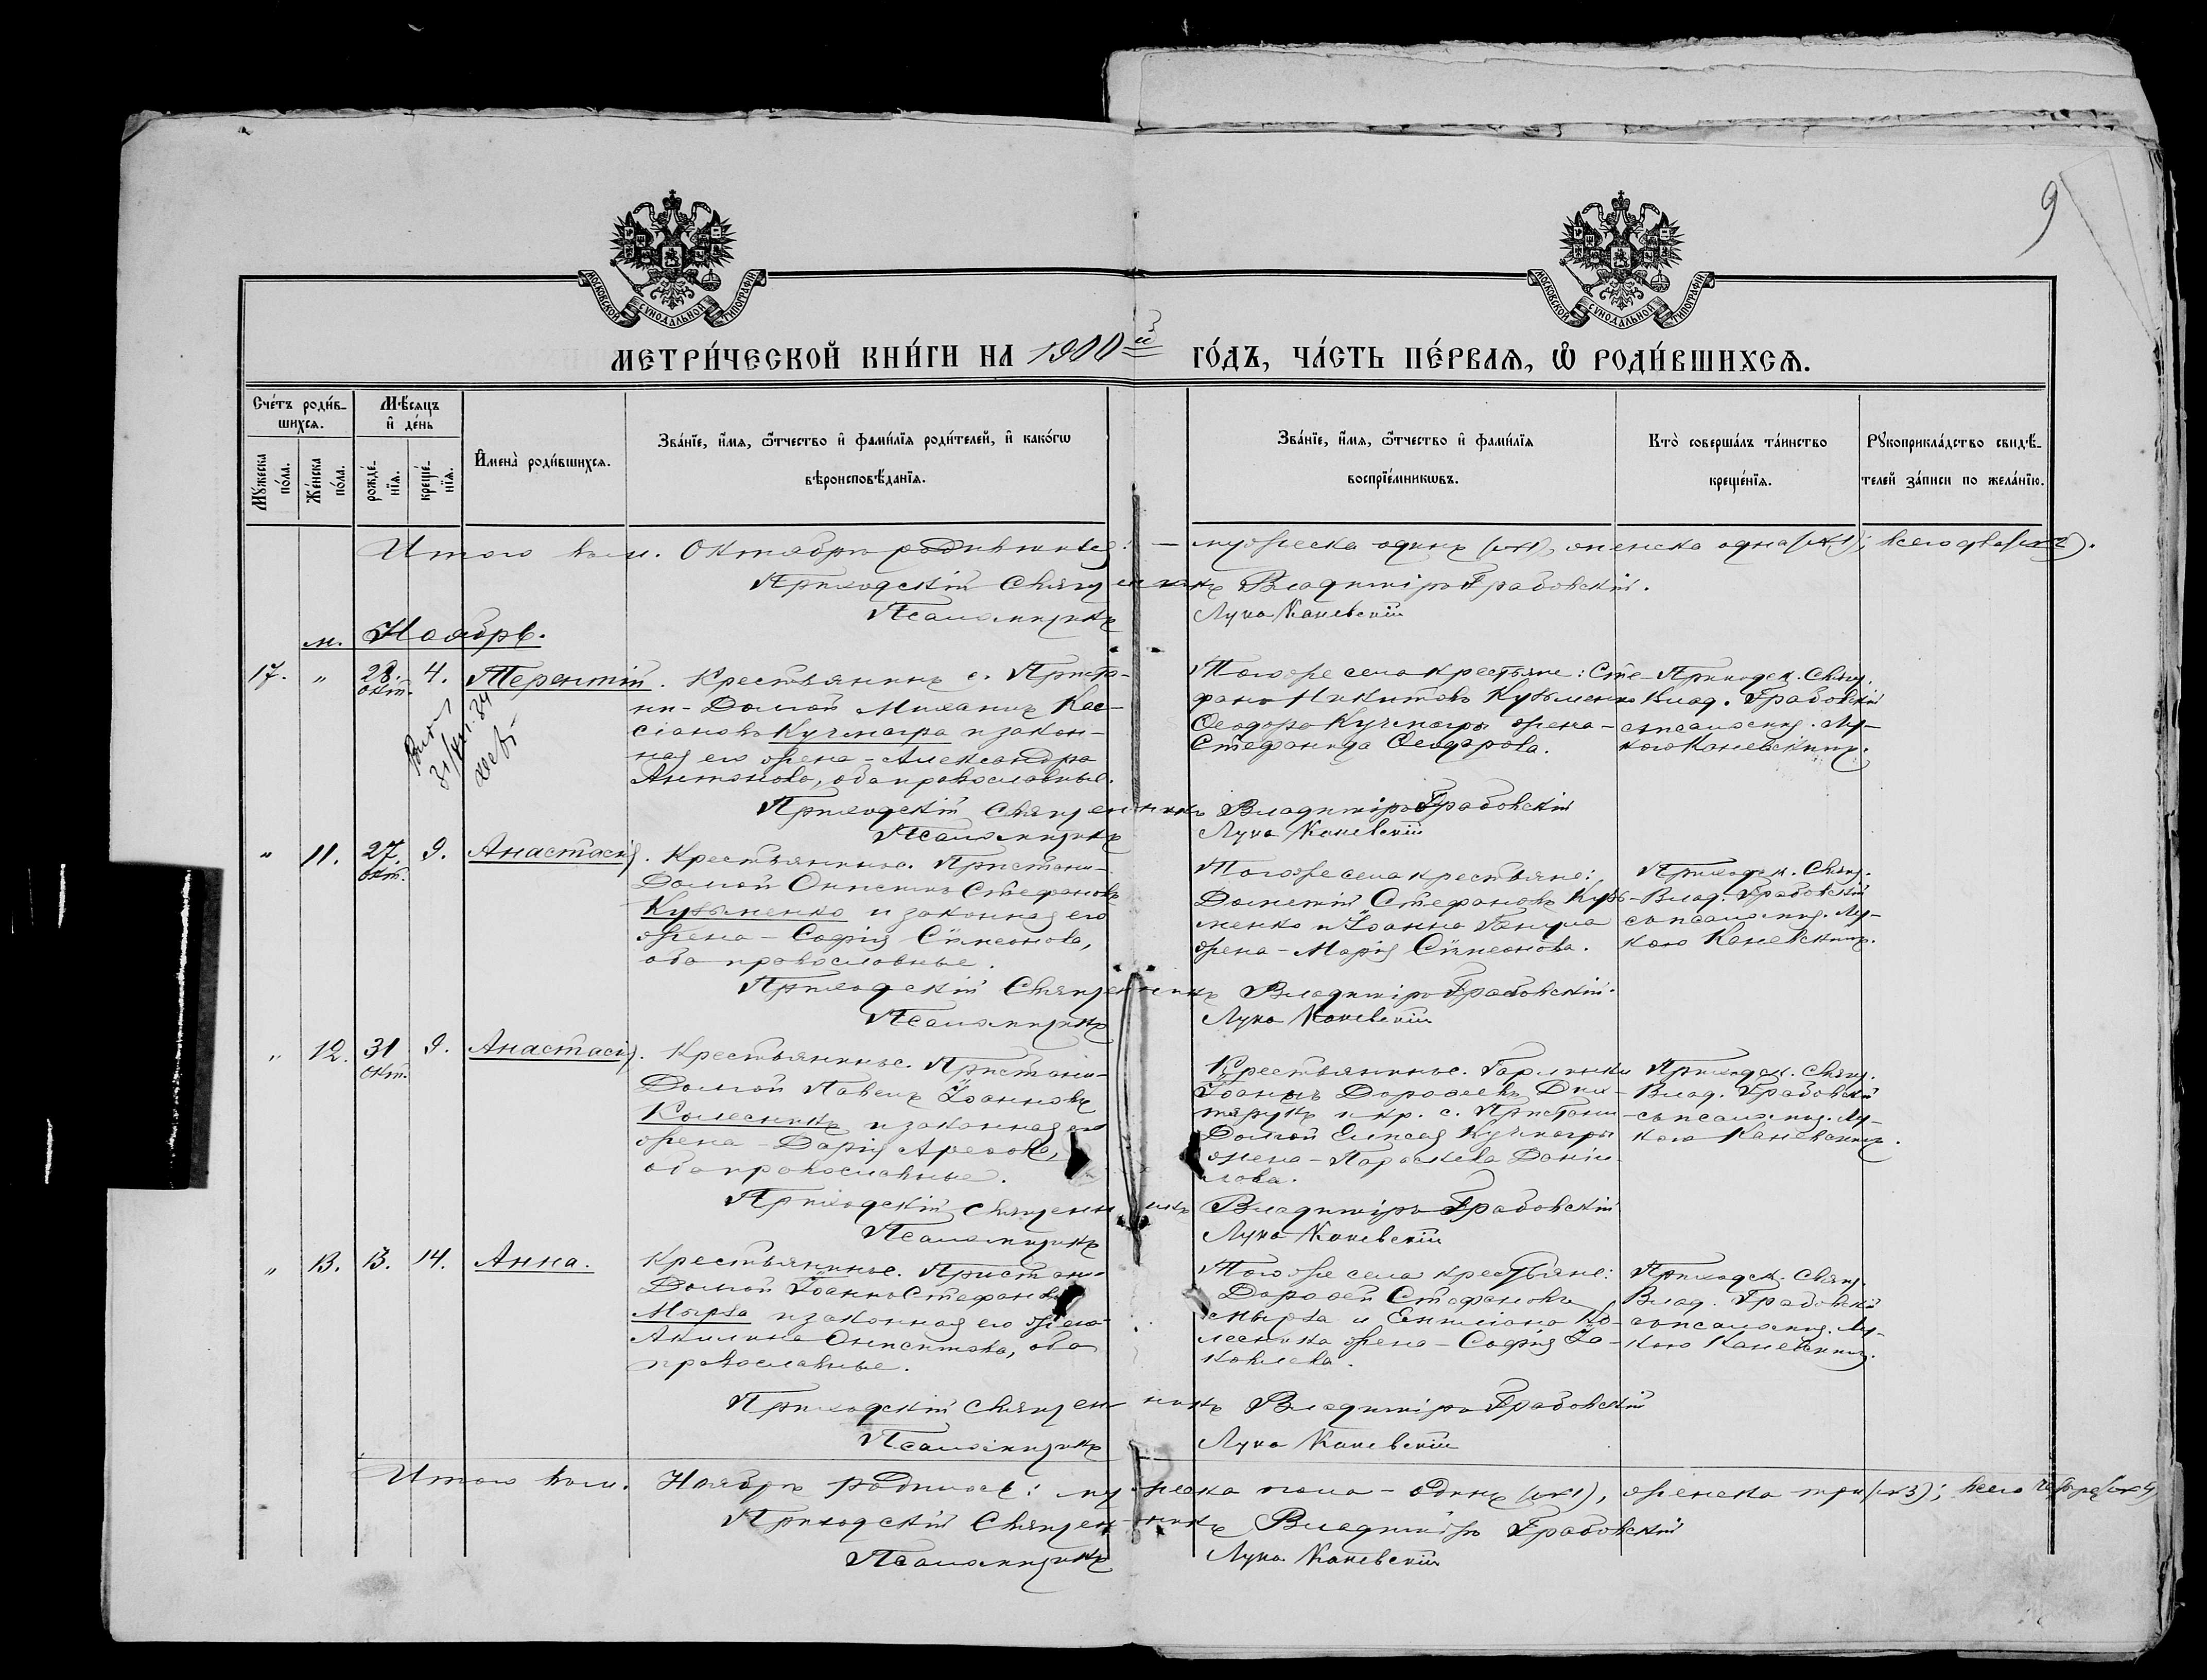 9
МОСКОВСКОЙ СѴНОДАЛЬНОЙ ТИПОГРАФІИ
МОСКОВСКОЙ СѴНОДАЛЬНОЙ ТИПОГРАФІИ
МЕТРИ́ЧЕСКОЙ КНИ́ГИ НА 1900й ГО́ДЪ, ЧА́СТЬ ПЕ́РВАѦ, Ѡ҆ РОДИ́ВШИХСѦ.
Сче́тъ роди́в-
шихсѧ.
Мꙋ́жеска по́ла.
Же́нска по́ла.
Мѣ́сѧцъ
и҆ де́нь
рожде́-
нїѧ.
креще́-
нїѧ.
И҆мена̀ роди́вшихсѧ.
Зва́нїе, и҆́мѧ, ѻ҆́тчество и҆ фами́лїѧ роди́телей, и҆ како́гѡ
вѣроисповѣ́данїѧ.
Зва́нїе, и҆́мѧ, ѻ҆́тчество и҆ фами́лїѧ
воспрїе́мникѡвъ.
Кто̀ соверша́лъ та́инство
креще́нїѧ.
Рꙋкоприкла́дство свидѣ́-
телей за́писи по жела́нїю.
Итого въ м. Октябрѣ родившихся: — мужеска одинъ (№1), женска одна (№1); всего два (№2).
Приходскій Священникъ Владиміръ Грабовскій.
Псаломщикъ Лука Каневскій
м. Ноябрь.
17. „ 28. окт. 4. Терентій.
Крестьянинъ с. Приста-
ни-Долгой Михаилъ Кас-
сіановъ Кучмагра и закон-
ная его жена – Александра
Антонова, оба православные.
Того же села крестьяне: Сте-
фанъ Никитовъ Кузьменко
Ѳеодора Кучмагры жена –
Стефанида Ѳеодорова.
Приходск. Свящ.
Влад. Грабовскій
съ псаломщ. Лу-
кою Каневскимъ.
Приходскій Священникъ Владиміръ Грабовскій
Псаломщикъ Лука Каневскій
„ 11. 27. окт. 9. Анастасія.
Крестьянинъ с. Пристани-
Долгой Онисимъ Стефановъ
Кузьменко и законная его
жена – Софія Сѵмеонова,
оба православные.
Того же села крестьяне:
Дометій Стефановъ Кузь-
менко и Іоанна Ганула
жена – Марія Сѵмеонова.
Приходск. Свящ.
Влад. Грабовскій
съ псаломщ. Лу-
кою Каневскимъ.
Приходскій Священникъ Владиміръ Грабовскій.
Псаломщикъ Лука Каневскій
„ 12. 31 окт. 9. Анастасія.
Крестьянинъ с. Пристани-
Долгой Павелъ Іоанновъ
Колесникъ и законная его
жена – Дарія
оба православные.
Крестьянинъ с.
Іоаннъ Дороѳеевъ
и кр. с. Пристани
Долгой Елисея Кучмагры
жена – Параскева Даніи-
лова.
Приходск. Свящ.
Влад. Грабовскій
съ псаломщ. Лу-
кою Каневскимъ.
Приходскій Священникъ Владиміръ Грабовскій
Псаломщикъ Лука Каневскій
„ 13. 13. 14. Анна.
Крестьянинъ с. Пристани-
Долгой Іоаннъ Стефановъ
Мырза и законная его жена
Акилина Онисимова, оба
православные.
Того же села крестьяне:
Дороѳей Стефановъ
Мырза и Емиліана Ко-
лесника жена – Софія Іа-
ковлева.
Приходск. Свящ.
Влад. Грабовскій
съ псаломщ. Лу-
кою Каневскимъ.
Приходскій Священникъ Владиміръ Грабовскій
Псаломщикъ Лука Каневскій
Итого въ м. Ноябрѣ родилось: мужеска пола – одинъ (№1), женска три (№3); всего четыре (№4)
Приходскій Священникъ Владиміръ Грабовскій
Псаломщикъ Лука Каневскій